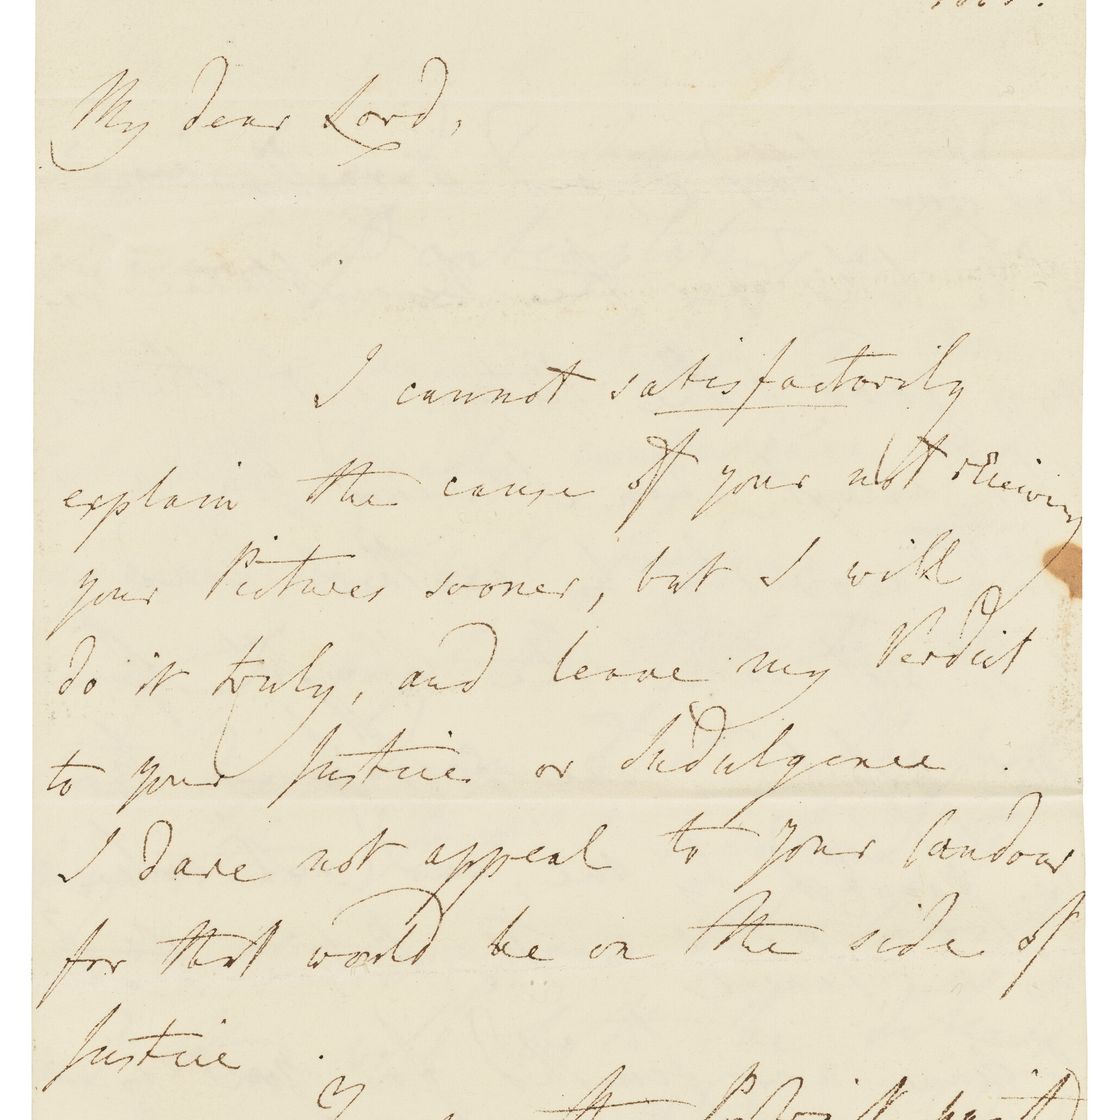 My dear Lord,
I cannot satisfactorily
explain the cause of your not receiving
your Pictures sooner, but I will
do it truly, and leave my Verdict
to your Justice or Indulgence.
I dare not appeal to your Candour
for that would be on the side of
Justice.
the